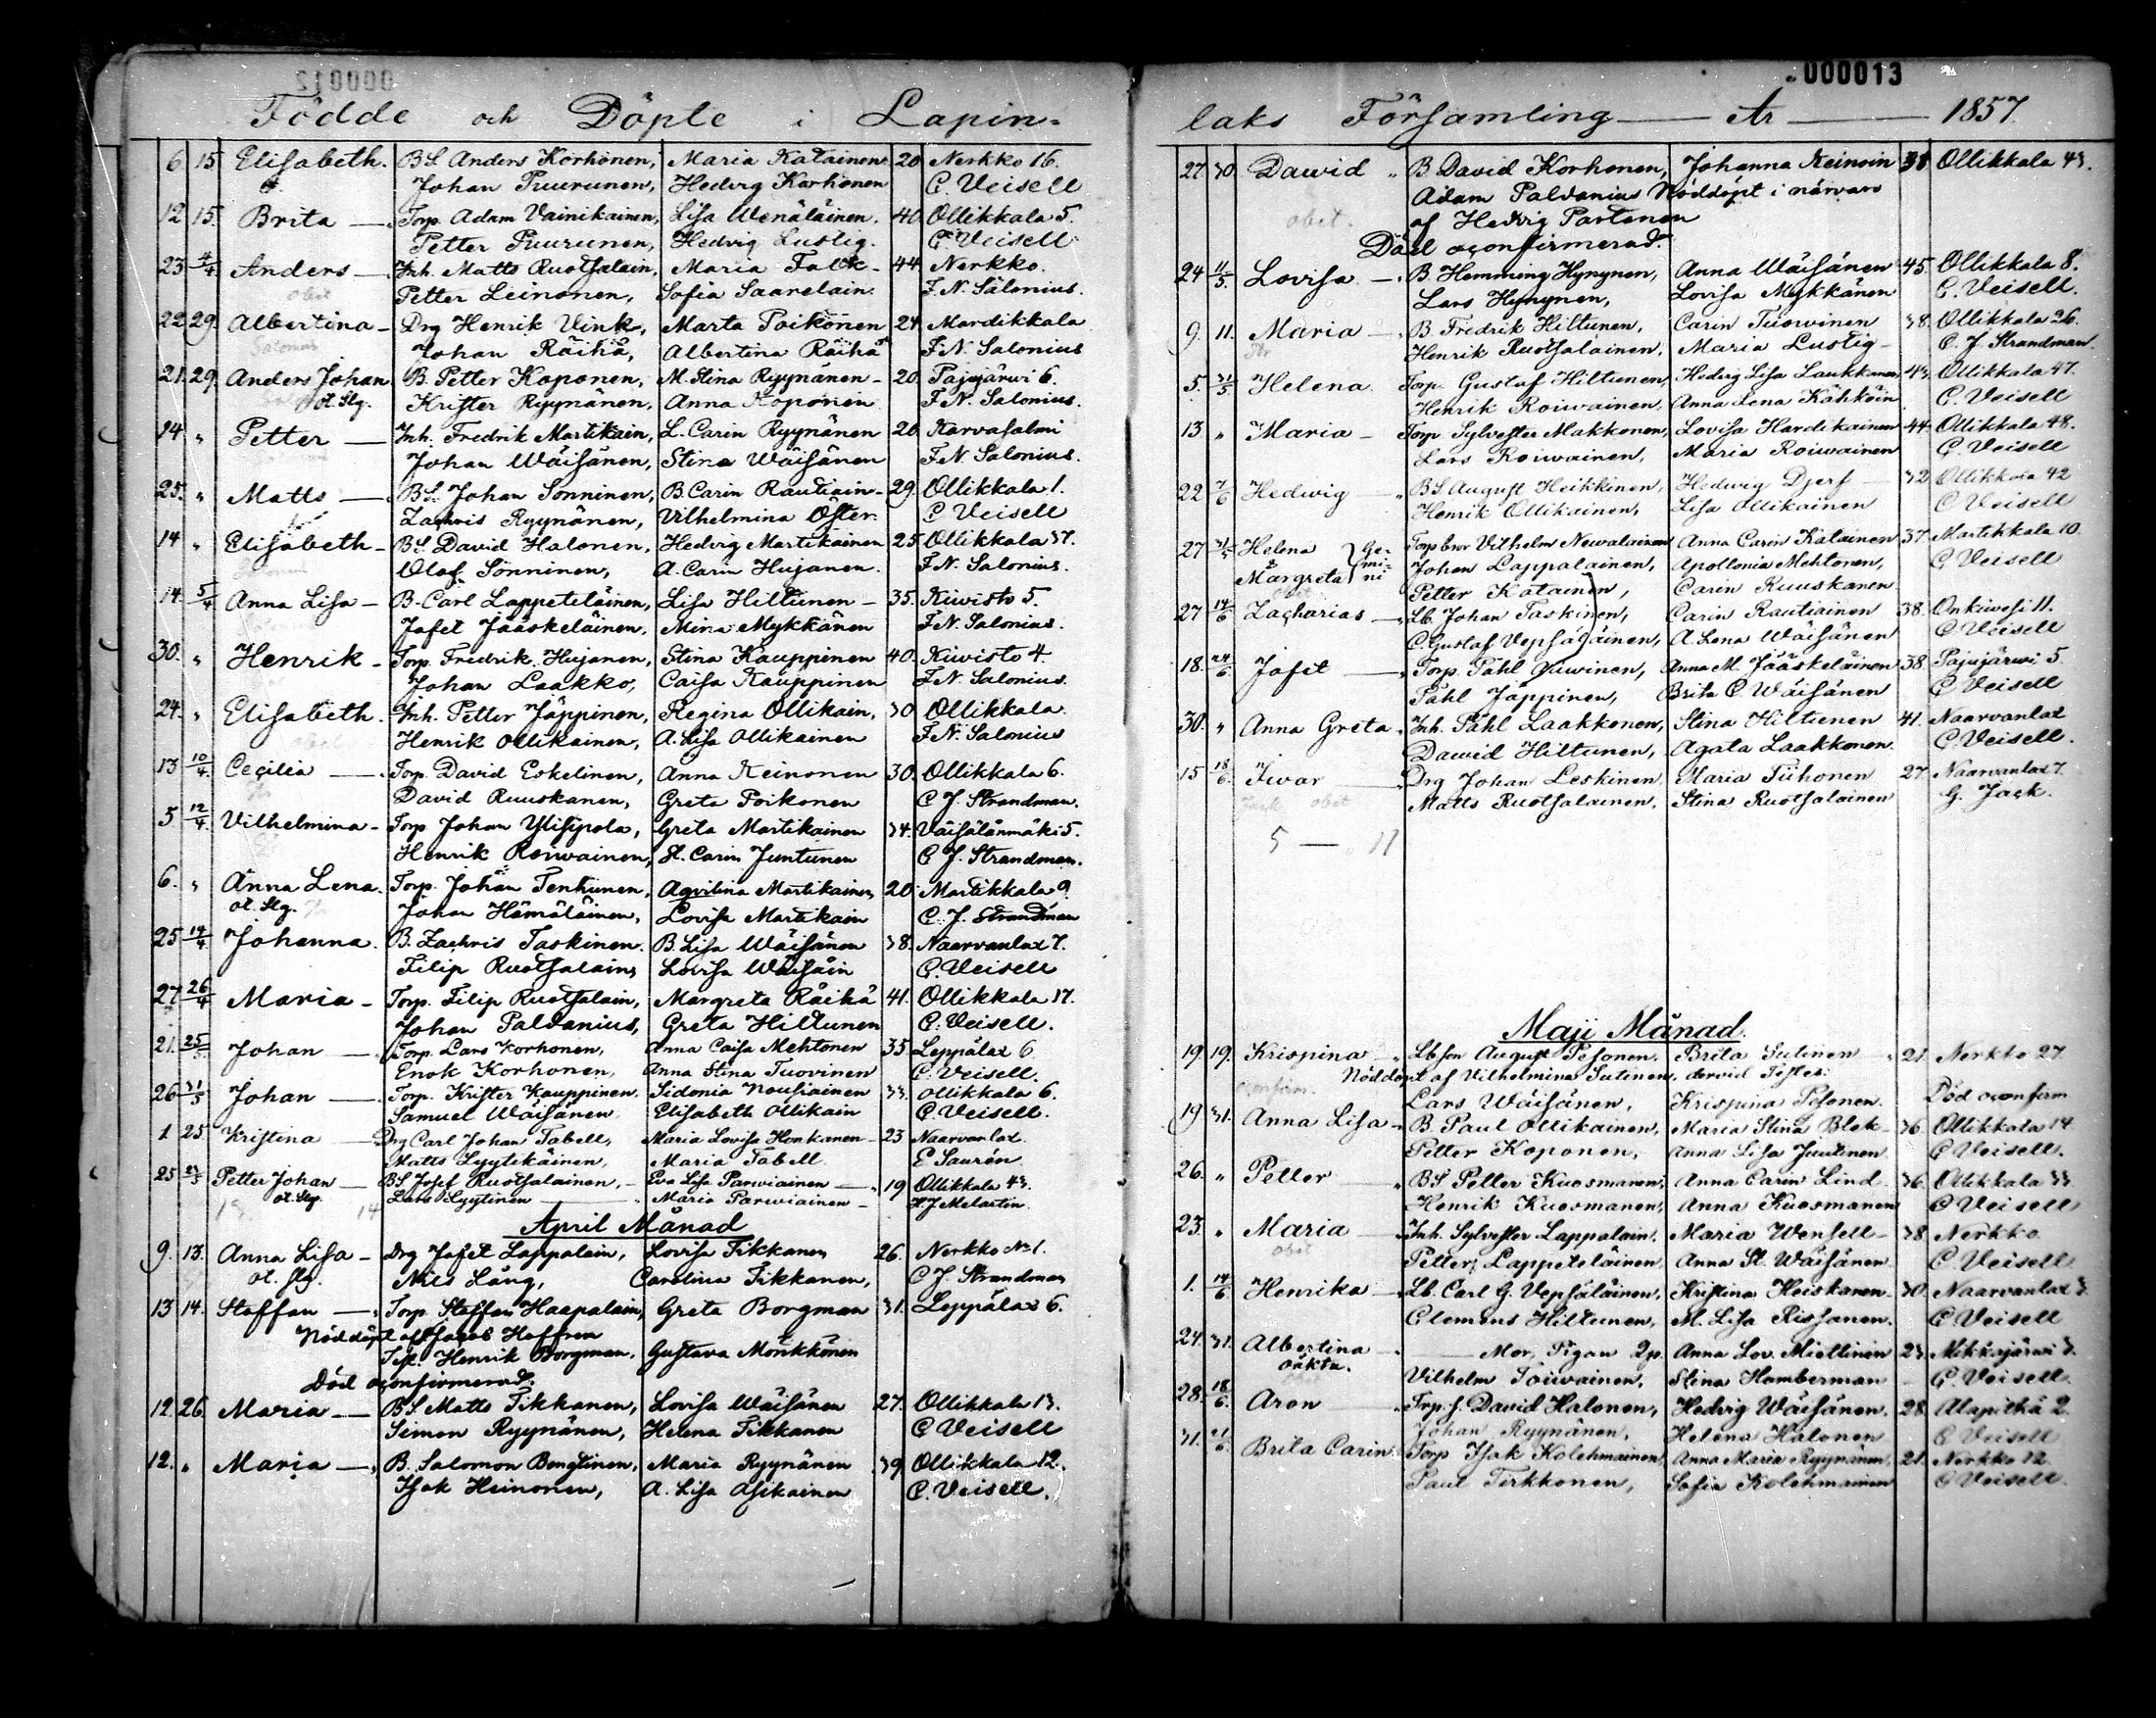 000012
Födde och Döpte i Lapin=
6 15 Elisabeth. BS Anders Korhonen, Maria Katainen 20 Nerkko 16.
Johan Puurunen, Hedvig Korhonen C. Veisell
12 15. Brita — Torp. Adam Vainikainen, Lisa Wenäläinen. 40. Ollikkala 5.
Petter Puurunen, Hedvig Lustig. C. Veisell
23 4/4. Anders — Inh. Matts Ruotsalain, Maria Falck - 44. Nerkko.
obit Petter Leinonen, Sofia Saarelain. F.N. Salonius.
22 29. Albertina — Drg Henrik Vink, Marta Poikonen 24. Mardikkala
Johan Räihä, Albertina Räihä F.N. Salonius
21. 29. Anders Johan B. Petter Koponen, M. Stina Ryynänen - 20. Pajujärwi 6.
ot. Slg. Krister Ryynänen, Anna Koponen F.N. Salonius.
14 " Petter — Inh. Fredrik Martikain, L. Carin Ryynänen 20 Karvasalmi
Johan Wäisänen, Stina Wäisänen F.N. Salonius.
25. " Matts — BS. Johan Sonninen, B. Carin Rautiain - 29. Ollikkala 1.
Zachris Ryynänen, Vilhelmina Öster. C Veisell
14 " Elisabeth - BS. David Halonen, Hedvig Martikainen 25. Ollikkala 37.
Olof Sonninen, A. Carin Hujanen. F.N. Salonius.
14. 5/4 Anna Lisa - B. Carl Lappeteläinen, Lisa Hiltunen - 35. Kiwisto 5.
Jafet Jääskeläinen, Mina Mykkänen F.N. Salonius.
30. " Henrik - Torp. Fredrik Hujanen, Stina Kauppinen 40. Kiwisto 4.
Johan Laakko, Caisa Kauppinen F.N. Salonius.
24. " Elisabeth. Inh. Petter Jäppinen, Regina Ollikain, 30 Ollikkala
obit Henrik Ollikainen, A. Lisa Ollikainen F.N. Salonius
13 10/4. Cecilia — Torp. David Eskelinen, Anna Keinonen 30. Ollikkala 6.
David Ruuskanen, Greta Poikonen C. J. Strandman.
5. 12/4 Vilhelmina - Torp Johan Ylisipola, Greta Martikainen 34. Väisälänmäki 5.
Henrik Roiwainen, H. Carin Juntunen C J. Strandman.
6. " Anna Lena. Torp. Johan Tenhunen, Agvilina Martikainen 20. Martikkala 9.
ot. Slg. Johan Hämäläinen, Lovisa Martikain C. J. Strandman
25 14/4. Johanna. B. Zachris Taskinen. B. Lisa Wäisänen 38. Naarvanlax 7.
Filip Ruotsalain, Lovisa Wäisäin C. Veisell
27 26/4 Maria - Torp. Filip Ruotsalain, Margreta Räihä 41. Ollikkala 17.
Johan Paldanius, Greta Hiltunen C. Veisell.
21. 25/5 Johan — Torp. Lars Korhonen, Anna Caisa Mehtonen 35. Leppälax 6.
Enok Korhonen, Anna Stina Tuovinen C. Veisell.
26 31/5 Johan — Torp. Krister Kauppinen. Sidonia Nousiainen 33. Ollikkala 6.
Samuel Wäisänen Elisabeth Ollikain C. Veisell.
1 25. Kristina — Drg Carl Johan Tabell, Maria Lovisa Honkanen - 23 Naarvanlax
Matts Lyytikäinen, Maria Tabell E Saurén.
25 Petter Johan — BS Josef Ruotsalainen, - Eva Lisa Parwiainen — 19 Ollikkala 43.
ot. Slg. Lars Lyytinen — Maria Parwiainen - H.J. Melartin
April Månad
9. 13. Anna Lisa - Drg Jafet Lappalain, Lovisa Tikkanen 26. Nerkko No 1.
ot. Slg. Nils Lång, Carolina Tikkanen, C J. Strandman
13 14. Staffan — Torp. Staffan Haapalain, Greta Borgman 31. Leppälax 6.
Nöddöpt af Jacob Hoffren
Test. Henrik Borgman. Gustava Mönkkönen
Död oconfirmerad.
12. 26. Maria — BS. Matts Tikkanen, Lovisa Wäisänen 27. Ollikkala 13.
Simon Ryynänen, Helena Tikkanen C Veisell
12. " Maria — B. Salomon Bengtinen, Maria Ryynänen 39. Ollikkala 12.
Isak Heinonen, A. Lisa Asikainen C. Veisell.
000013
laks Församling — År — 1857
27 30. Dawid " B David Korhonen, Johanna Keinoin 38 Ollikkala 43.
Adam Paldanius Nöddöpt i närvaro
obit. af Hedvig Partanen
Död oconfirmerad.
24 11/5. Lovisa — B. Hemming Hynynen, Anna Wäisänen 45. Ollikkala 8.
Lars Hynynen, Lovisa Mykkänen C. Veisell.
9. 11. Maria — B. Fredrik Hiltunen, Carin Tuovinen 38. Ollikkala 26.
Henrik Ruotsalainen, Maria Lustig - C. J. Strandman.
5. 31/5 Helena. Torp. Gustaf Hiltunen, Hedvig Lisa Laukkanen 43. Ollikkala 47.
Henrik Roiwainen. Anna Lena Kähköin C. Veisell
13 " Maria - Torp Sylvester Makkonen, Lovisa Hardikainen 44. Ollikkala 48.
Lars Roiwainen, Maria Roiwainen C. Veisell
22 7/6 Hedwig " BS. August Heikkinen, Hedwig Djerf - 32 Ollikkala 42
Henrik Ollikainen, Lisa Ollikainen C Veisell
27 31/5 Helena } Ge- Torp bror Vilhelm Newalainen Anna Carin Katainen 37. Martikkala 10.
& mi- Johan Lappalainen, Apollonia Mehtonen, C Veisell
Margreta ni Petter Katainen, Carin Ruuskanen
27 14/6 Zacharias — Lb. Johan Taskinen, Carin Rautiainen 38. Onkiwesi 11.
C. Gustaf Vepsäläinen, A. Lena Wäisänen C Veisell
18. 24/6 Jafet — Torp. Påhl Siwinen, Anna M. Jääskeläinen 38 Pajujärwi 5
Påhl Jäppinen, Brita C. Wäisänen C Veisell
30. " Anna Greta. Inh. Påhl Laakkonen, Stina Hiltunen 41. Naarvanlax
Dawid Hiltunen, Agata Laakkonen. C Veisell.
15 18/6. Iwar — Drg Johan Leskinen. Maria Tiihonen 27. Naarvanlax 7.
Jack obit Matts Ruotsalainen, Stina Ruotsalainen G. Jack.
5 — 11
Maji Månad.
19 19. Krispina — Lb son August Pesonen. Brita Sutinen 21. Nerkko 27.
Nöddöpt af Vilhelmina Sutinen, dervid Testes:
oconfirm. Lars Wäisänen, Krispina Pesonen. Död oconfirm
19 31. Anna Lisa - B. Paul Ollikainen, Maria Stina Blok - 36. Ollikkala 14
Petter Koponen, Anna Lisa Juutinen C Veisell.
26. " Petter — BS Petter Kuosmanen, Anna Carin Lind 36. Ollikkala 33
Henrik Kuosmanen, Anna Kuosmanen C Veisell,
23. " Maria — Inh. Sylvester Lappalain. Maria Wensell - 38 Nerkko.
obit Petter Lappeteläinen, Anna St. Wäisänen. C Veisell.
1. 14/6 Henrika — Lb. Carl G. Vepsäläinen, Kristina Heiskanen. 30. Naarvanlax 3.
Clemens Hiltunen, M. Lisa Rissanen. C Veisell
24. 31. Albertina — Mor, Pigan Anna Lov. Miettinen 23. Mikkajärwi 3.
oäkta. Vilhelm Toiwainen, Stina Homberman - C. Veisell.
28. 18/6. Aron — Trp. s. David Halonen, Hedvig Wäisänen. 28. Alapitkä 2.
Johan Ryynänen, Helena Halonen C Veisell
31. 21/6 Brita Carin Torp Isak Kolehmainen, Anna Maria Ryynänen. 21. Nerkko 12.
Paul Tirkkonen, Sofia Kolehmainen C Veisell.